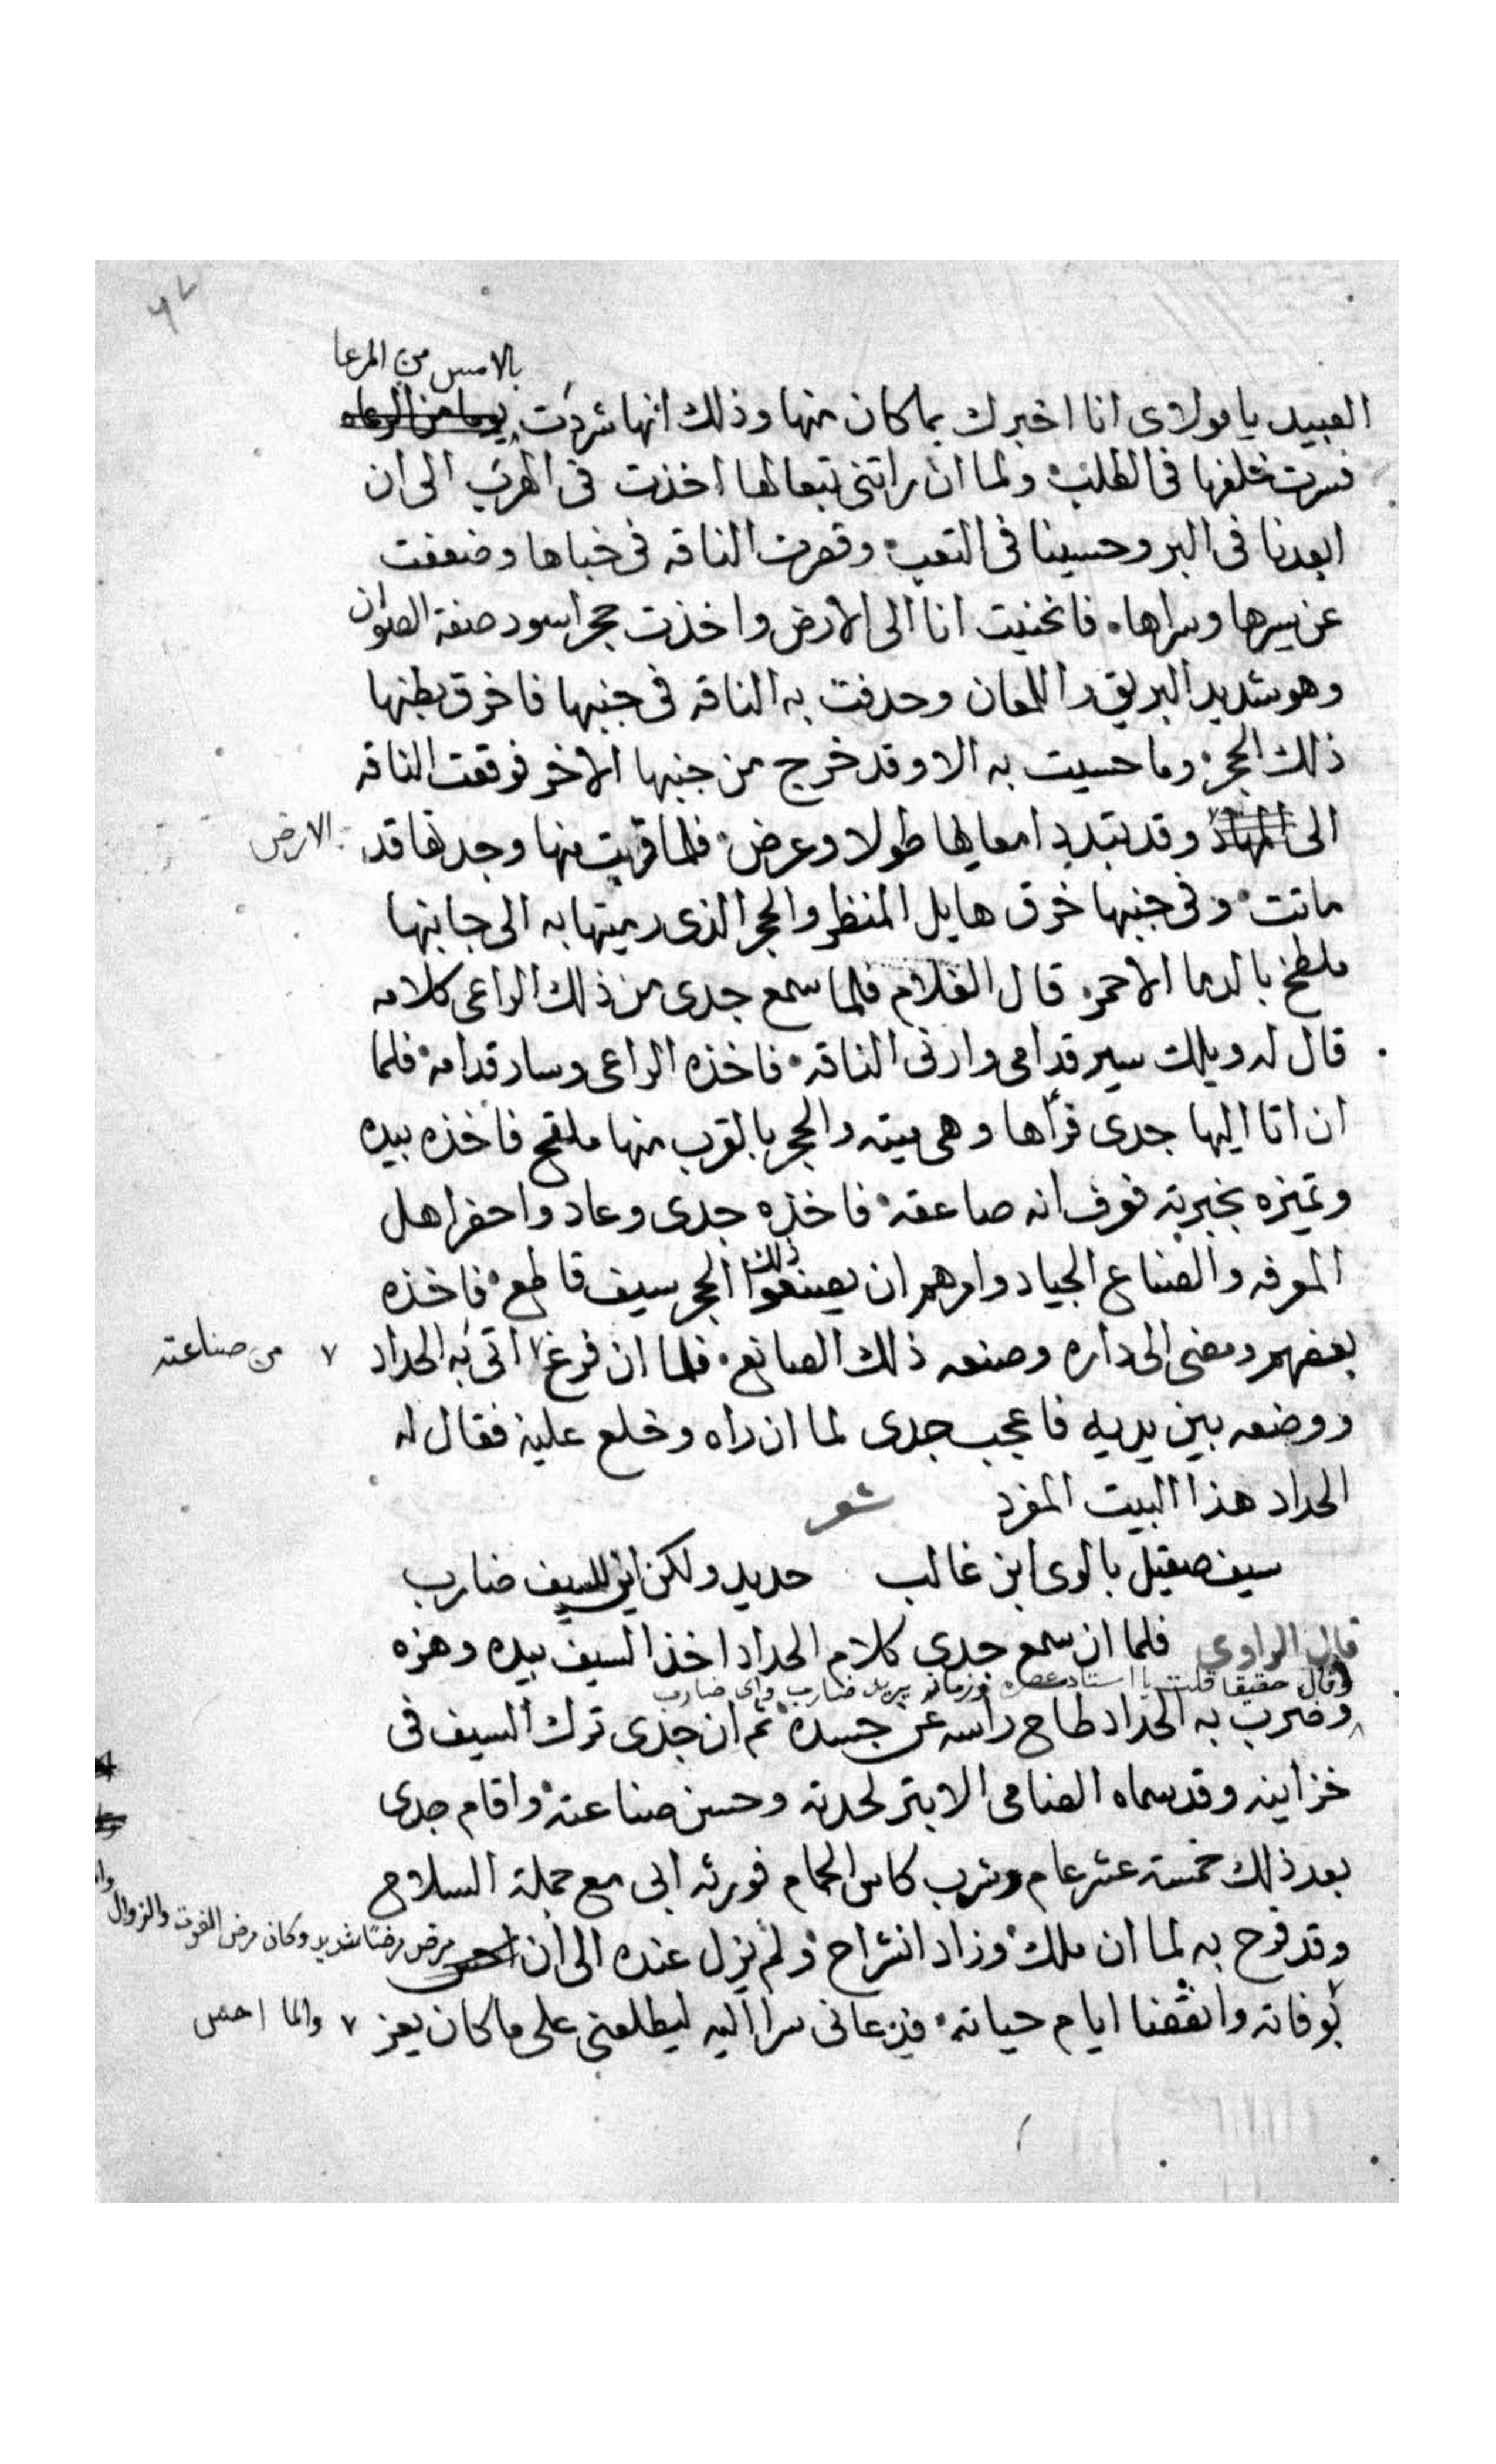 ٦٧
بالامس من المرعا
العبيد يا مولاى انا اخبرك بما كان منها وذلك انها شردت يوما من المرعاه
فسرت خلفها فى الطلب ولما ان راتنى تبعا لها اخذت فى الهرب الى ان
ابعدنا فى البر وحسينا فى التعب وقصرت الناقه فى خباها وضعفت
عن سيرها وسراها فانحنيت انا الى الارض واخذت حجر اسود صفة الصوان
وهو شديد البريق واللمعان وحدفت به الناقه فى جنبها فاخرق بطنها
ذلك الحجر وما حسيت به الا وقد خرج من جنبها الاخر فوقعت الناقه
الى المهاد وقد تبدد امعايها طولا وعرض فلما قربت منها وجدتها قد الارض
ماتت وفى جنبها خرق هايل المنظر والحجر الذى رميتها به الى جانبها
ملطخ بالدما الاحمر قال الغلام فلما سمع جدى من ذلك الراعى كلامه
قال له ويلك سير قدامى وارنى الناقه فاخذه الراعى وسار قدامه فلما
ان اتا اليها جدى فرأها وهى ميته والحجر بالقرب منها ملقح فاخذه بيده
وتميزه بخبرته فعرف انه صاعقه فاخذه جدى وعاد واحضر اهل
المعرفه والصناع الجياد وامرهم ان يصنعوا ذلك الحجر سيف قاطع فاخذه
بعضهم ومضى الى داره وصنعه ذلك الصانع فلما ان فرغ ٧ اتى به الحداد ٧ من صناعته
ووضعه بين يديه فاعجب جدى لما ان راه وخلع عليه فقال له
الحداد هذا البيت المفرد شعر
سيف صقيل بالوى ابن غالب حديد ولكن اين للسيف ضارب
قال الراوى فلما ان سمع جدى كلام الحداد اخذ السيف بيده وهزه
وقال حقيقا قلت يا استاد عصره وزمانه يريد ضارب واى ضارب
وضرب به الحداد طاح راسه عن جسده ثم ان جدى ترك السيف فى
خزاينه وقد سماه الضامى الابتر لحدته وحسن صناعته واقام جدى
بعد ذلك خمسة عشر عام وشرب كاس الحمام فورثه ابى مع جملة السلاح
وقد فرح به لما ان ملك وزاد انشراح ولم يزل عنده الى ان احس مرض مرضا شديد وكان مرض الفوت والزوال
بوفاته وانقضا ايام حياته فدعانى سرا اليه ليطلعنى على ما كان يعز ٧ ولما احس